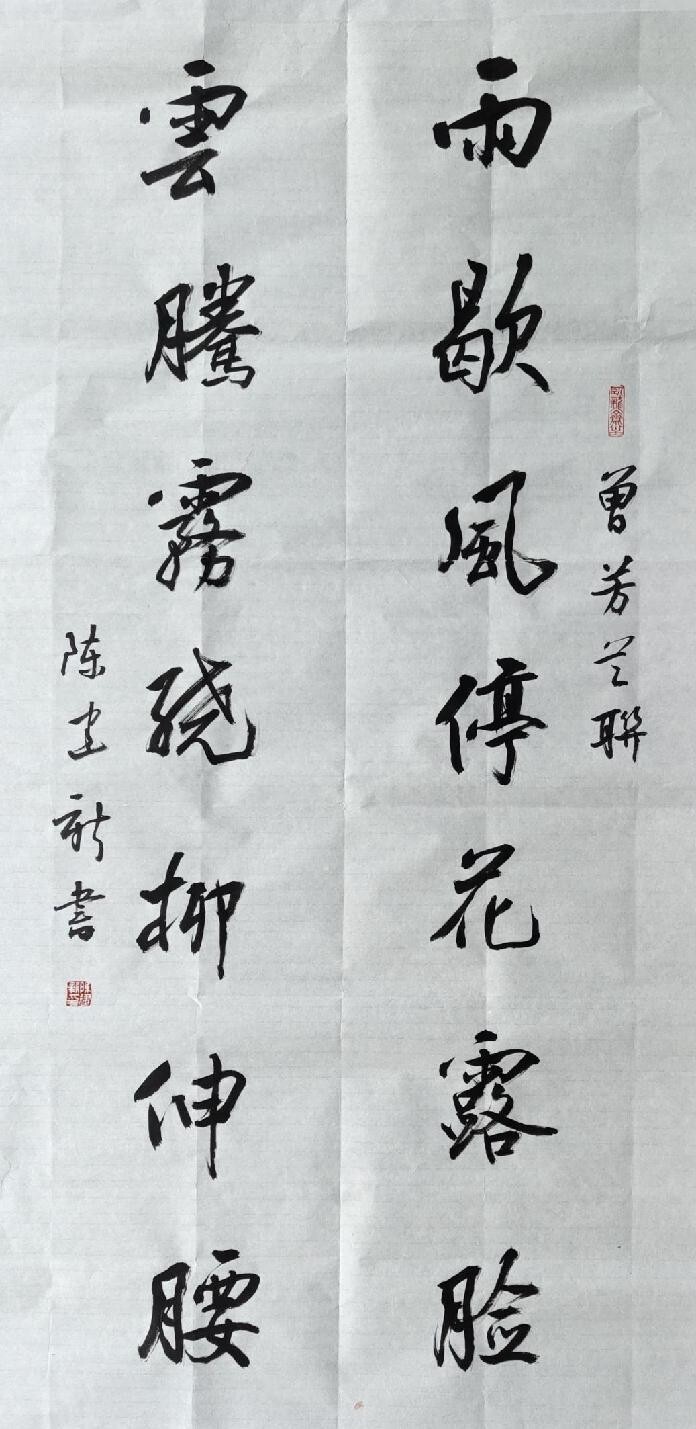 雨歇風停花露脸
雲騰霧绕柳伸腰
曾芳兰聯
陈建新書